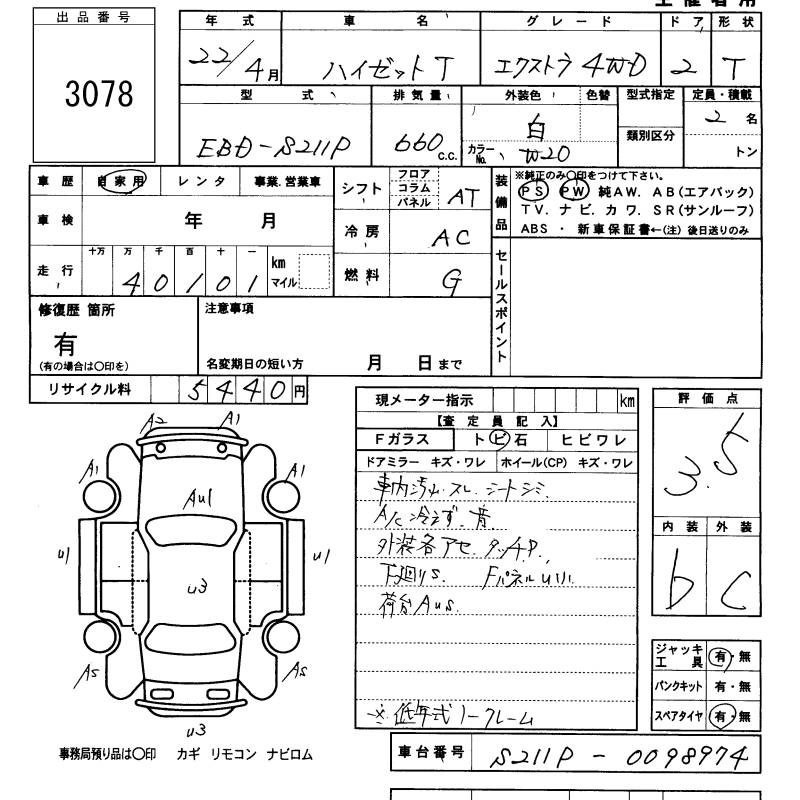 主催者用
出品番号
3078
年式 車名 グレード ドア 形状
22/4月 ハイゼットT エクストラ 4WD 2 T
型式 排気量 外装色 色替 型式指定 定員・積載
EBD-S211P 660c.c. 白 類別区分 2名
カラーNo. W20 トン
車歴 自家用 レンタ 事業.営業車
シフト フロア コラム パネル AT
装備品 ※純正のみ〇印をつけて下さい。
PS PW 純AW. AB(エアバック)
TV. ナビ. カワ. SR(サンルーフ)
ABS ・ 新車保証書←(注) 後日送りのみ
車検 年 月
冷房 AC
走行 十万 万 千 百 十 一
40101 km マイル
燃料 G
セールスポイント
修復歴 箇所
有
(有の場合は〇印を)
注意事項
名変期日の短い方 月 日まで
リサイクル料 5440円
現メーター指示 km
【査定員記入】
Fガラス トビ石 ヒビワレ
ドアミラー キズ・ワレ ホイール(CP) キズ・ワレ
車内汚れ.スレ.シートシミ.
A/C冷えず.音.
外装各アセ.タッチP.
下廻りS. FパネルU小
荷台AUS.
※低年式ノークレーム
評価点
3.5
内装 外装
b C
ジャッキ工具 有・無
パンクキット 有・無
スペアタイヤ 有・無
A2 A1
A1 A1
AU1
U1 U1
U3
AS AS
U3
事務局預り品は〇印 カギ リモコン ナビロム
車台番号 S211P - 0098974